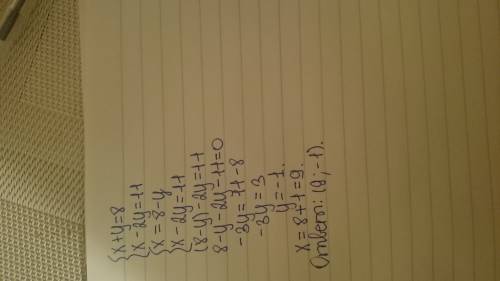 {x+y=8
{x-2y=11
{x=8-y
{x-2y=11
(8-y)-2y=11
8-y-2y-11=0
-3y=11-8
-3y=3
y=-1.
x=8+1=9.
Ответ: (9;-1).